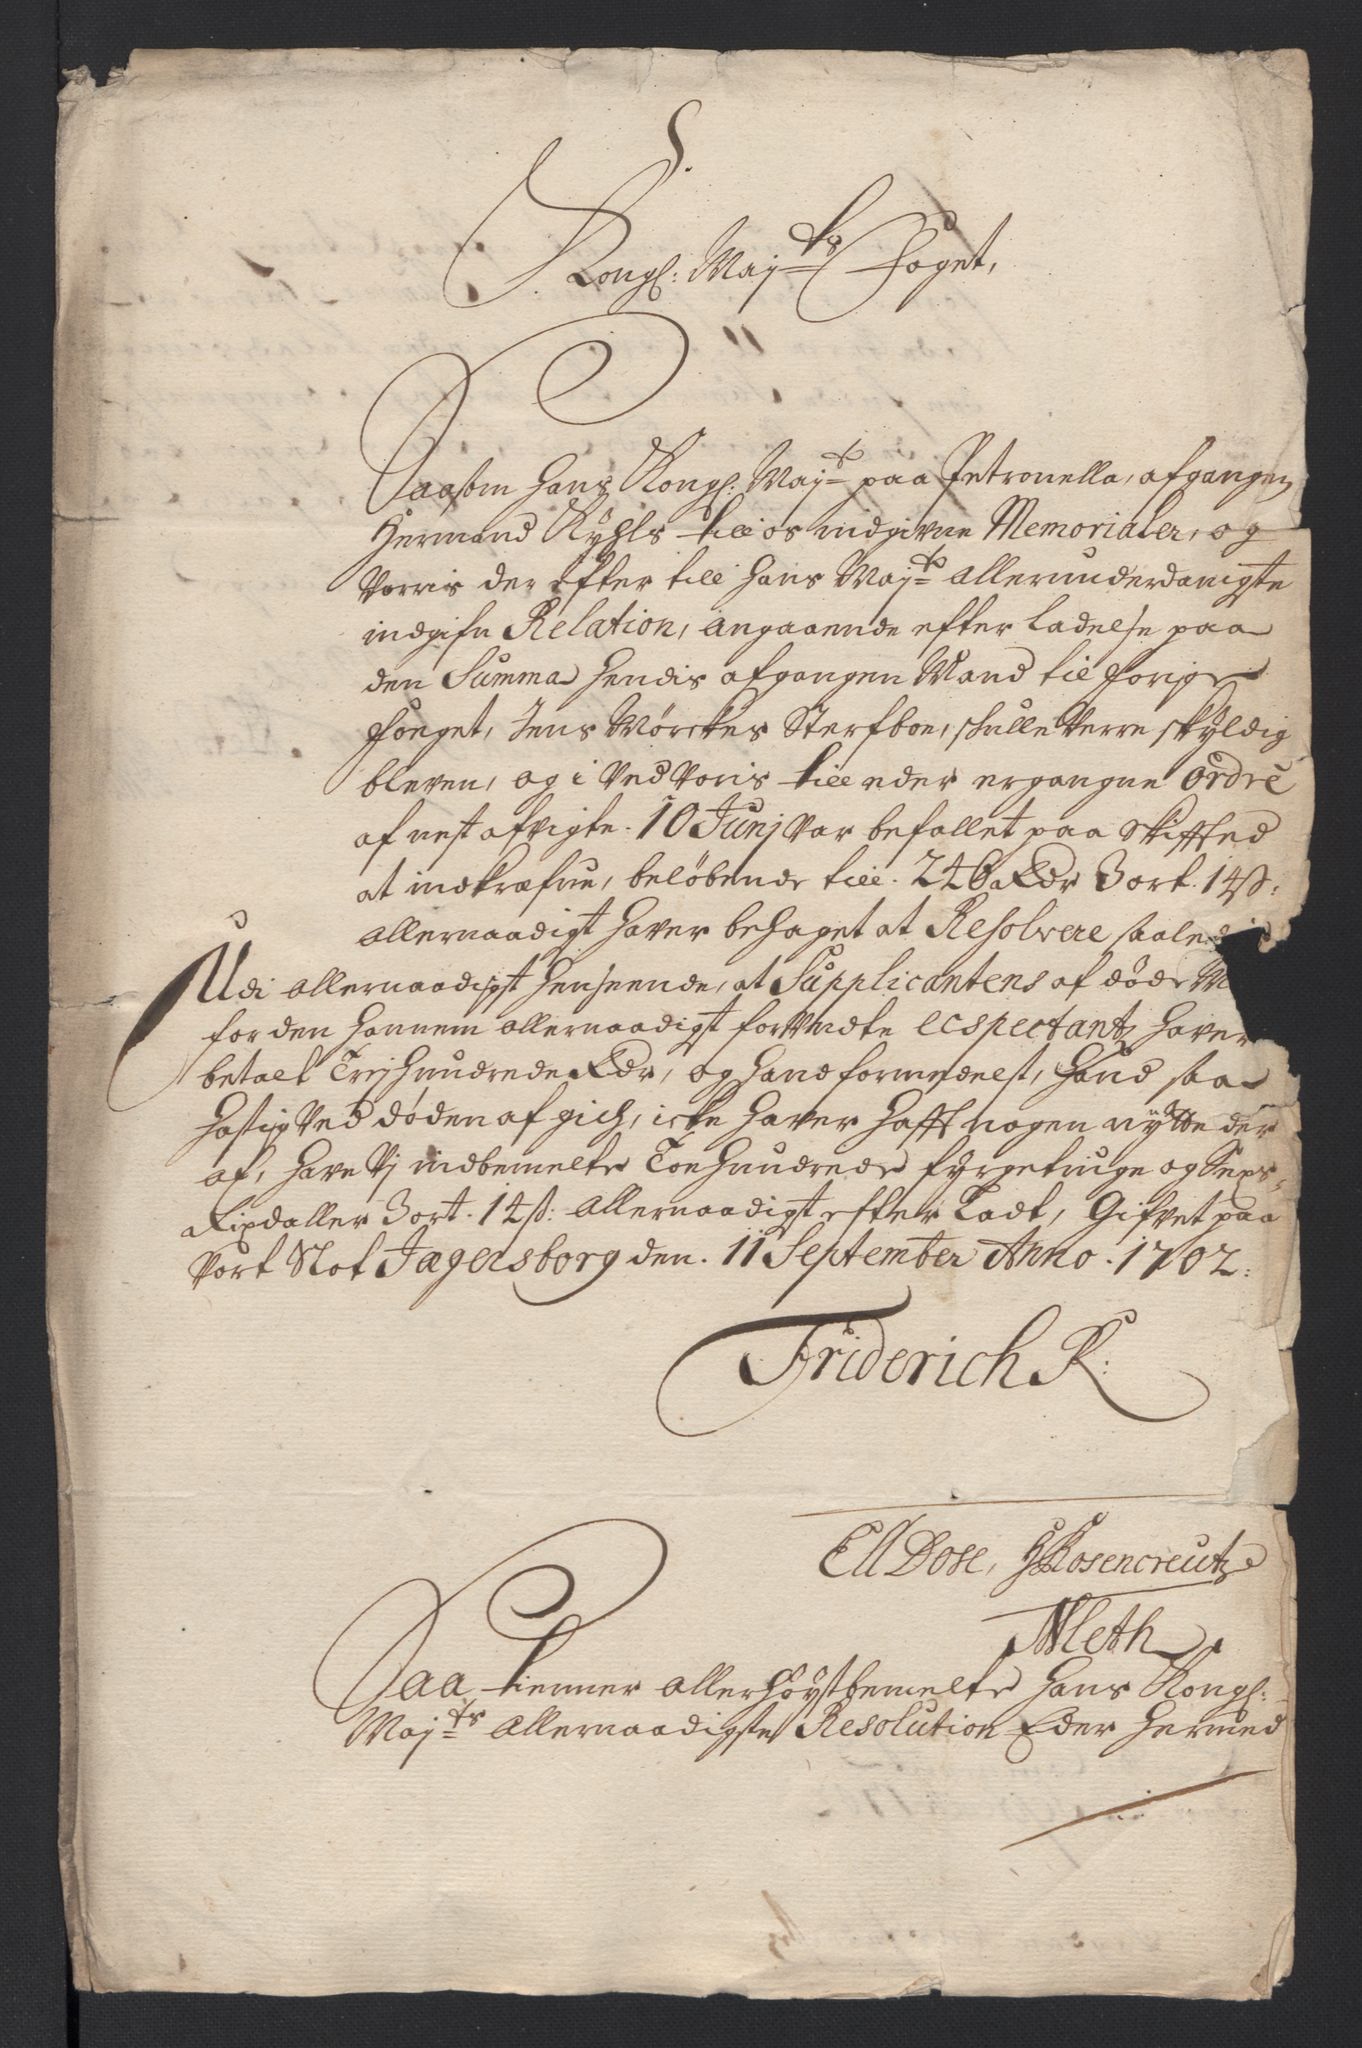 S.
Kongl: Maj:ts Foget,
Saasom Hans Kongl: Maj:t paa Petronella, afgangen
Hermand Rÿhls till os indgivne Memorialer, og
Vorris der efter till Hans Maj:ts Allerunderdanigste
indgifne Relation, angaaende efter ladelse paa
den Summa hendis afgangen Mand til forige
Fouget, Jens Mørckes Sterfboe, skulle verre skÿldig
bleven, og i ved voris till eder ergangne ordre
af nest afvigte 10 Junj var befallet paa Skiffted
at indkræfue, beløbende till. 246 Rdr 3 ort. 14 ß:
Allernaadigst haver behaget at Resolvere saaledis
Udi allernaadigst henseende, at Supplicantens af døde M
for den hannem allernaadigst forundte ecspectantz haver
betalt Trej hundrede Rdr, og hand formedelst, hand saa
hastig ved døden af gich, icke haver hafft nogen nÿtte der
af, have Vj indbemelte Toe hundrede fÿrgetiuge og Sex
Rixdaller 3 ort. 14 ß: allernaadigst efter ladt, Gifvet paa
Vort Slot Jægersborg den. 11 September Anno. 1702:
Friderich R:
CA Dose, H Rosencreutz
N Meth
Saa kienner allerhøÿstbemelte Hans Kongl:
Maj:ts Allernaadigste Resolution Eder hermed